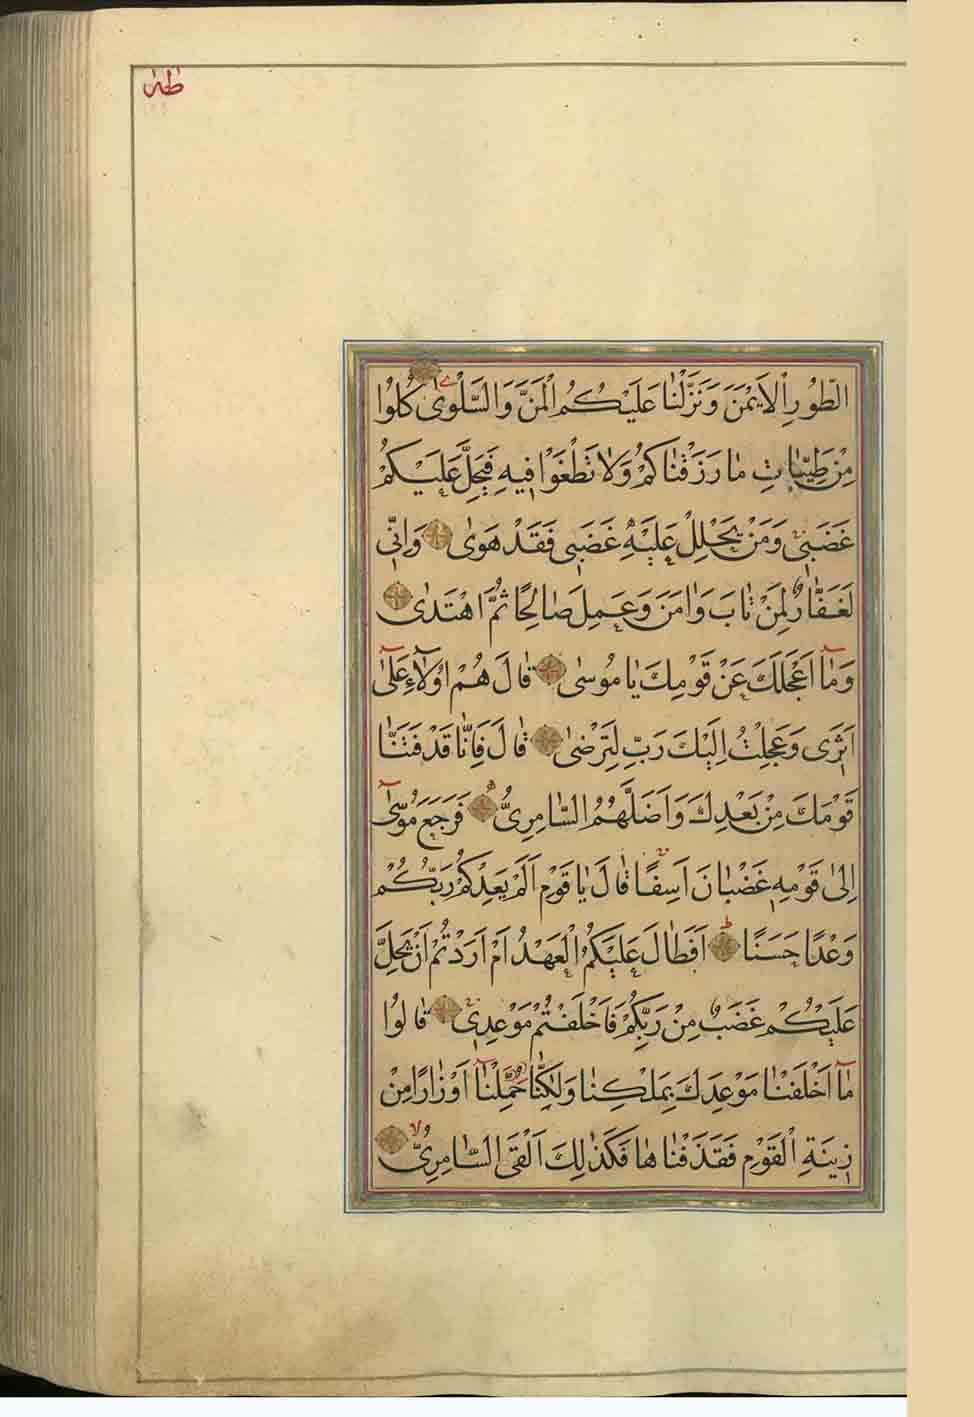 طٰهٰ
الطُّورِ الْاَيْمَنَ وَنَزَّلْنَا عَلَيْكُمُ الْمَنَّ وَالسَّلْوٰى كُلُوا
مِنْ طَيِّبَاتِ مَا رَزَقْنَاكُمْ وَلَا تَطْغَوْا فِيهِ فَيَحِلَّ عَلَيْكُمْ
غَضَبِي وَمَنْ يَحْلِلْ عَلَيْهِ غَضَبِي فَقَدْ هَوٰى وَاِنِّي
لَغَفَّارٌ لِمَنْ تَابَ وَاٰمَنَ وَعَمِلَ صَالِحًا ثُمَّ اهْتَدٰى
وَمَآ اَعْجَلَكَ عَنْ قَوْمِكَ يَا مُوسٰى قَالَ هُمْ اُولَآءِ عَلٰٓى
اَثَرِى وَعَجِلْتُ اِلَيْكَ رَبِّ لِتَرْضٰى قَالَ فَاِنَّا قَدْ فَتَنَّا
قَوْمَكَ مِنْ بَعْدِكَ وَاَضَلَّهُمُ السَّامِرِيُّ فَرَجَعَ مُوسٰٓى
اِلٰى قَوْمِهِ غَضْبَانَ اَسِفًا قَالَ يَا قَوْمِ اَلَمْ يَعِدْكُمْ رَبُّكُمْ
وَعْدًا حَسَنًا اَفَطَالَ عَلَيْكُمُ الْعَهْدُ اَمْ اَرَدْتُمْ اَنْ يَحِلَّ
عَلَيْكُمْ غَضَبٌ مِنْ رَبِّكُمْ فَاَخْلَفْتُمْ مَوْعِدِي قَالُوا
مَآ اَخْلَفْنَا مَوْعِدَكَ بِمَلْكِنَا وَلٰكِنَّا حُمِّلْنَآ اَوْزَارًا مِنْ
زِينَةِ الْقَوْمِ فَقَذَفْنَاهَا فَكَذٰلِكَ اَلْقَى السَّامِرِيُّ